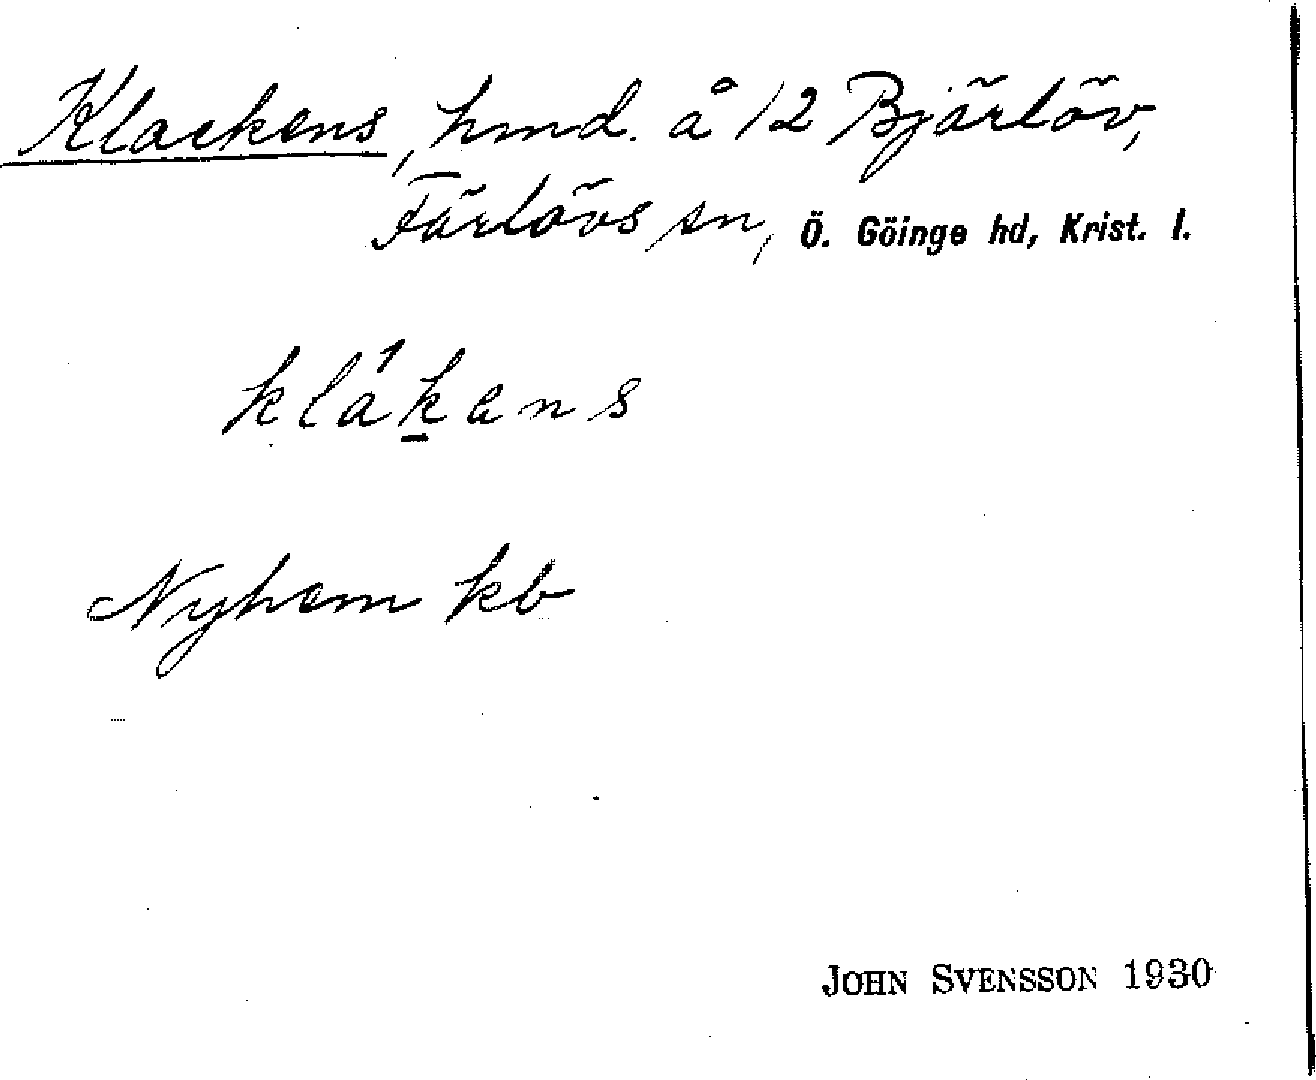 Klackens, hmd. å 12 Bjärlöv,
Färlövs sn, Ö. Göinge hd, Krist. l.
kla1kens
Nyhem kb
JOHN SVENSSON 1930